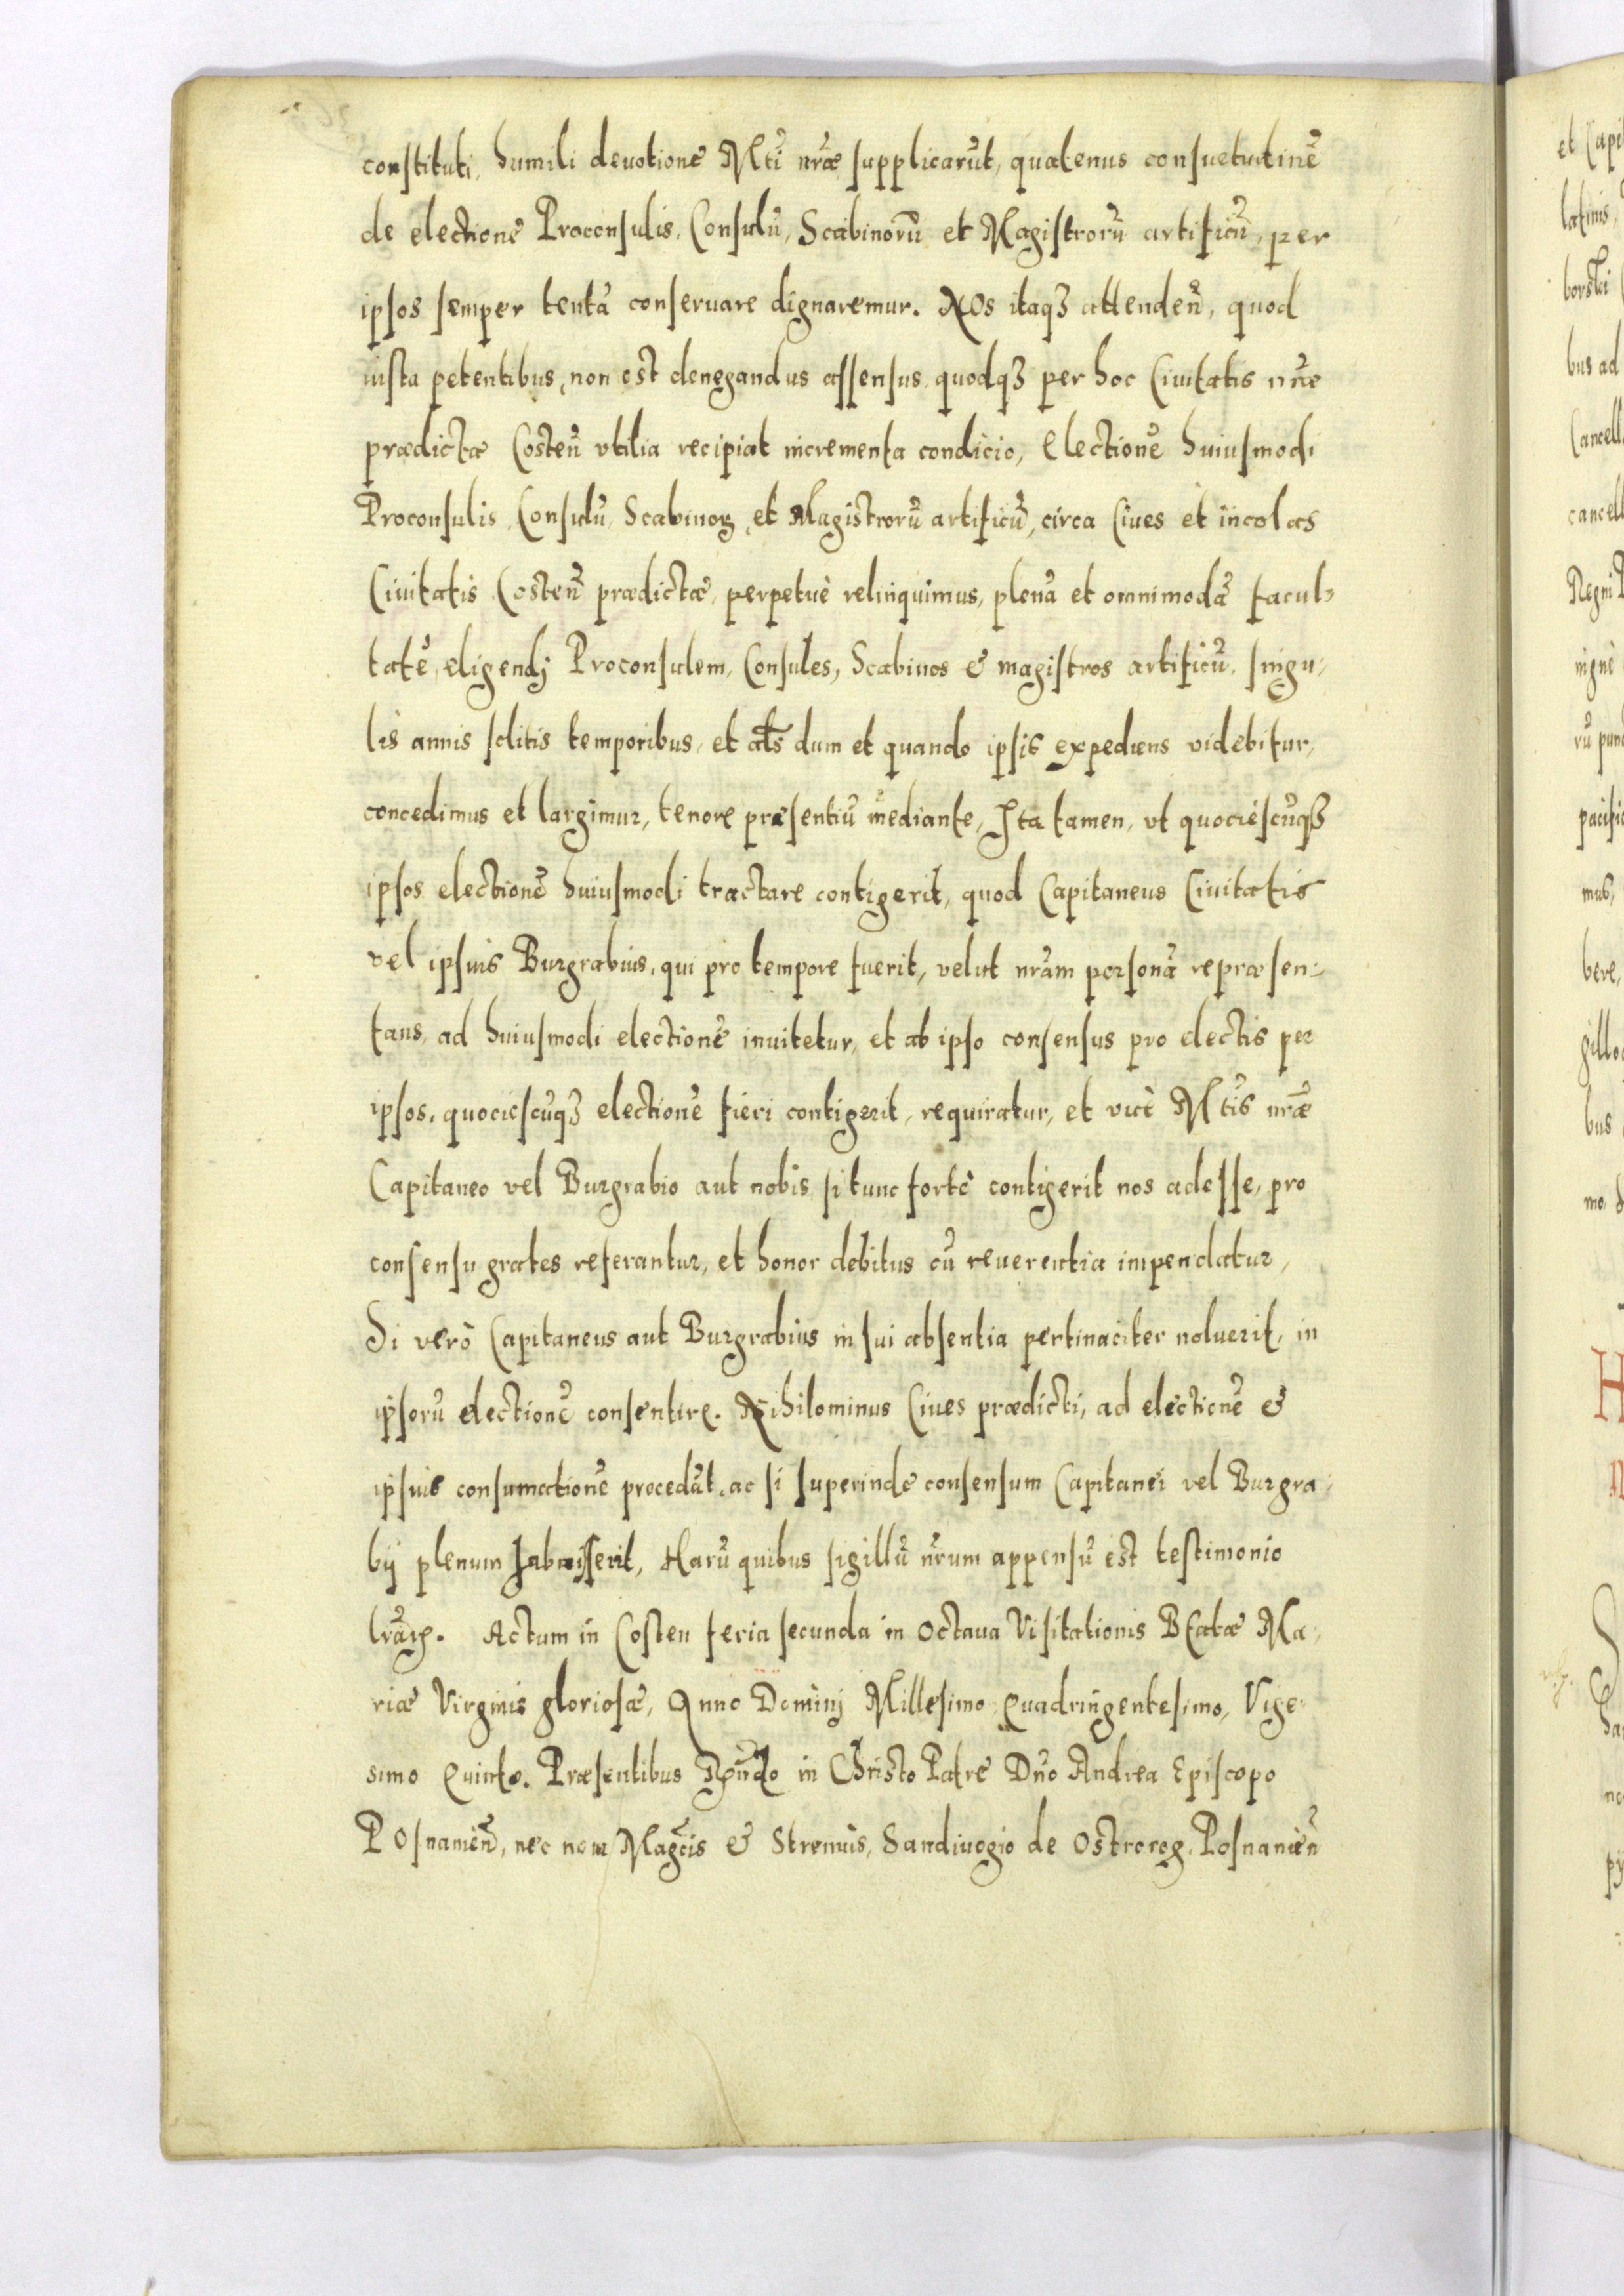 constituti, humili deuotione Mti nr̃æ supplicarũt, quatenus consuetudinẽ
de electione Proconsulis, Consulũ, Scabinorũ et Magistrorũ artificũ, per
ipsos semper tentã conseruare dignaremur. NOs itaqꝫ attendeñ, quod
iusta petentibus, non est denegandus assensus, quodqꝫ per hoc Ciuitatis nr̃æ
prædictæ Costeñ vtilia recipiat incrementa condicio, Electionẽ huiusmodi
Proconsulis, Consulũ, Scabinoꝝ et Magistrorũ artificũ, circa Ciues et incolas
Ciuitatis Costeñ prædictæ, perpetuè relinquimus, plenã et omnimodã facul-
tatẽ, eligendj Proconsulem, Consules, Scabinos & magistros artificũ, singu-
lis annis solitis temporibus, et als dum et quando ipsis expediens videbitur,
concedimus et largimur, tenore præsentiũ mediante, Ita tamen, vt quociescũqꝫ
ipsos electionẽ huiusmodi tractare contigerit, quod Capitaneus Ciuitatis
vel ipsius Burgrabius, qui pro tempore fuerit, velut nr̃am personã repræsen-
tans, ad huiusmodi electionẽ inuitetur, et ab ipso consensus pro electis per
ipsos, quociescũqꝫ electionẽ fieri contigerit, requiratur, et vice Mtis nr̃æ
Capitaneo vel Burgrabio aut nobis, si tunc fortè contigerit nos adesse, pro
consensu grates referantur, et honor debitus cũ reuerentia impendatur,
Si verò Capitaneus aut Burgrabius in sui absentia pertinaciter noluerit, in
ipsorũ electionẽ consentire. Nihilominus Ciues prædicti, ad electionẽ &
ipsius consumationẽ procedãt, ac si superinde consensum Capitanei vel Burgra-
bij plenum habuisserit, Harũ quibus sigillũ nr̃um appensũ est testimonio
lr̃aꝝ. Actum in Costen feria secunda in Octaua Visitationis BEatæ Ma-
riæ Virginis gloriosæ, Anno Dominj Millesimo Quadringentesimo, Vige-
simo Quinto. Præsentibus Rñdo in Christo Patre Dño Andrea Episcopo
POsnanieñ, nec non Magcis & Strenuis, Sandiuogio de Ostrorog, Posnanieñ